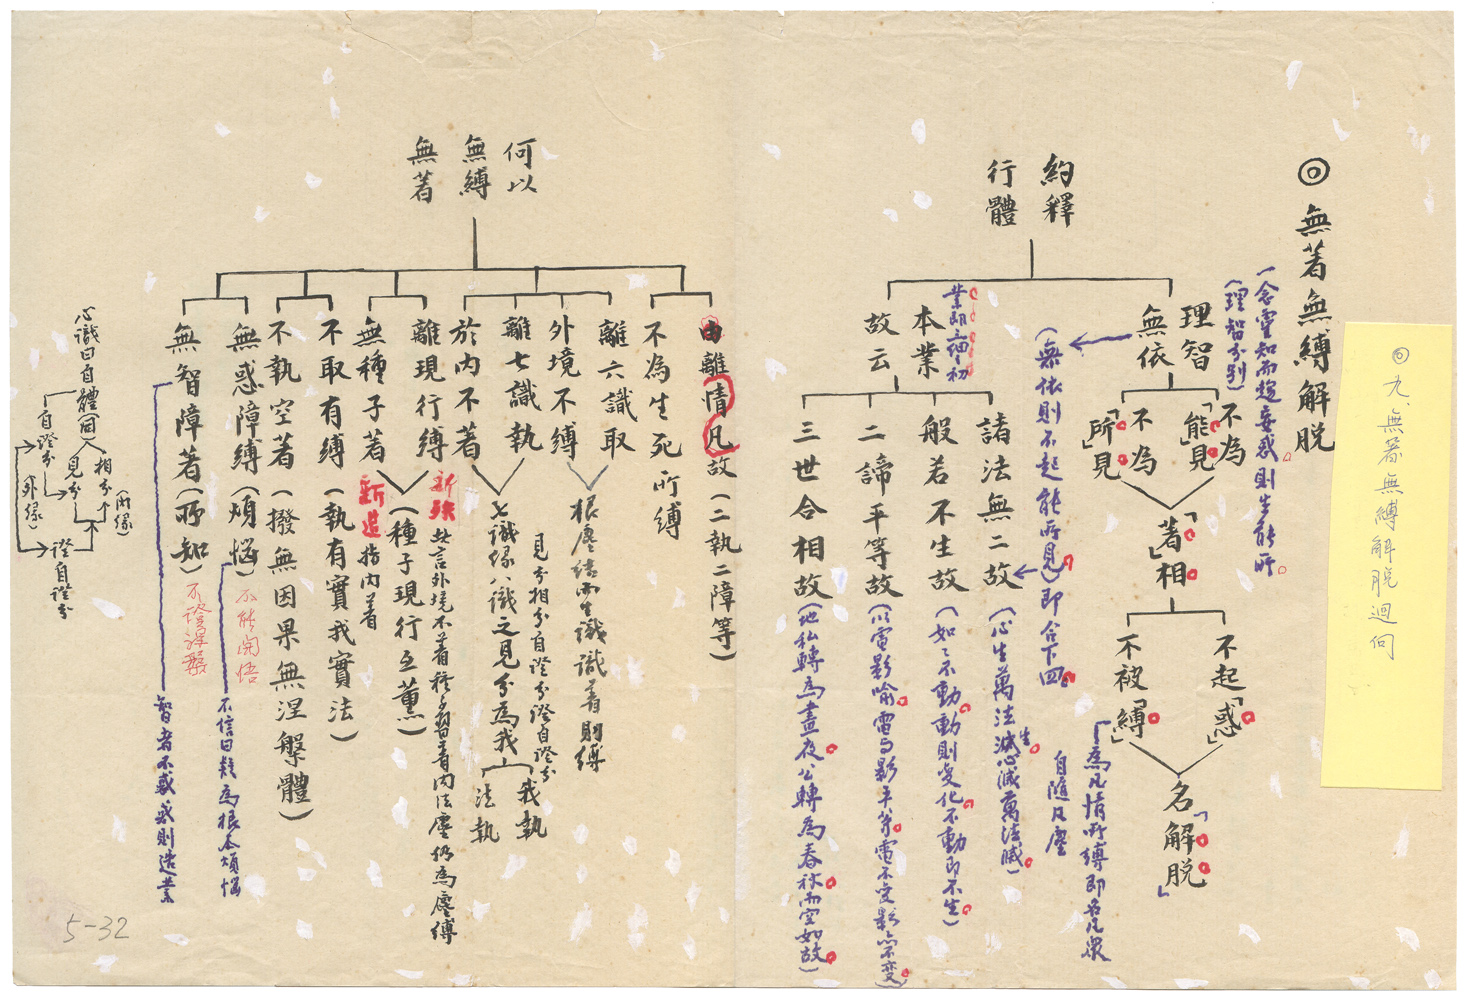 ◎九、無著無縛解脱迴向
◎無著無縛解脱
一念靈知而趨妄惑則生能所。
(理智分別)
約釋
行體
理智
無依
不為
「能」見
不為
「所」見
「著」相
不起「惑」
不被「縛」
名「解脱」
為凡情所縛即名凡衆
自隨凡塵
(無依則不起能所見)即合下四
業即論之初
本業
故云
諸法無二故
(心生萬法生。心滅萬法滅。)
般若不生故
(如如不動。動則變化。不動即不生。)
二諦平等故
(以電影喻。電与影平等。電不受影亦不变。)
三世合相故
(地私轉為晝夜。公轉為春秋。而空如故。)
何以
無縛
無著
由離情凡故(二執二障等)
不為生死所縛
離六識取
外境不縛
根塵結而生識識著則縛
離七識執
於內不著
見分相分自證分證自證分
七識緣八識之見分為我
我執
法執
離現行縛
無種子著
新殊
此言外境不著種子習著内法塵仍為塵縛
(種子現行互薰)
新造
指内著
不取有縛(執有實我實法)
不執空著(撥無因果無涅槃體)
無惑障縛(煩惱)
不能開悟
不信曰疑為根本煩惱
無智障著(所知)
不證涅槃
智者不惑惑則造業
心識曰自體(因)
相分
(所緣)
見分
自證分
(外緣)
證自證分
5-32